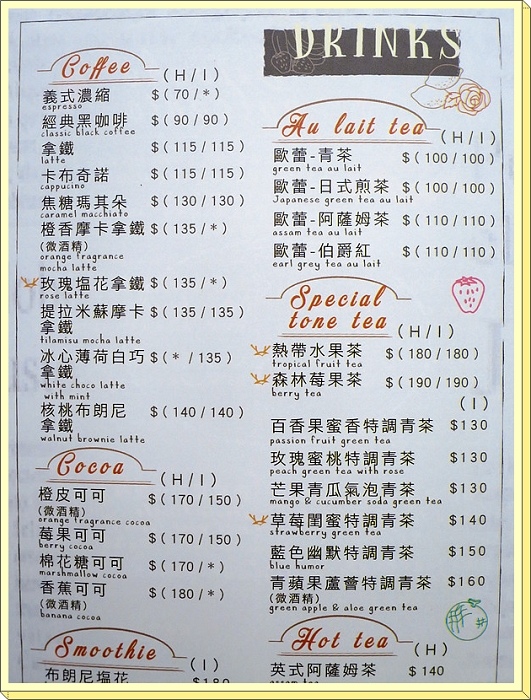 DRINKS
Coffee
(H/I)
義式濃縮 $(70/*)
espresso
經典黑咖啡 $(90/90)
classic black coffee
拿鐵 $(115/115)
latte
卡布奇諾 $(115/115)
cappucino
焦糖瑪其朵 $(130/130)
caramel macchiato
橙香摩卡拿鐵 $(135/*)
(微酒精)
orange fragrance
mocha latte
玫瑰塩花拿鐵 $(135/*)
rose latte
提拉米蘇摩卡 $(135/135)
拿鐵
tilamisu mocha latte
冰心薄荷白巧 $(*/135)
拿鐵
white choco latte
with mint
核桃布朗尼 $(140/140)
拿鐵
walnut brownie latte
Cocoa
(H/I)
橙皮可可 $(170/150)
(微酒精)
orange fragrance cocoa
莓果可可 $(170/150)
berry cocoa
棉花糖可可 $(170/*)
marshmallow cocoa
香蕉可可 $(180/*)
(微酒精)
banana cocoa
Smoothie
(I)
布朗尼塩花 $180
Au lait tea
(H/I)
歐蕾-青茶 $(100/100)
green tea au lait
歐蕾-日式煎茶 $(100/100)
Japanese green tea au lait
歐蕾-阿薩姆茶 $(110/110)
assam tea au lait
歐蕾-伯爵紅 $(110/110)
earl grey tea au lait
Special
tone tea
(H/I)
熱帶水果茶 $(180/180)
tropical fruit tea
森林莓果茶 $(190/190)
berry tea
(I)
百香果蜜香特調青茶 $130
passion fruit green tea
玫瑰蜜桃特調青茶 $130
peach green tea with rose
芒果青瓜氣泡青茶 $130
mango & cucumber soda green tea
草莓閨蜜特調青茶 $140
strawberry green tea
藍色幽默特調青茶 $150
blue humor
青蘋果蘆薈特調青茶 $160
(微酒精)
green apple & aloe green tea
Hot tea
(H)
英式阿薩姆茶 $140
assam tea